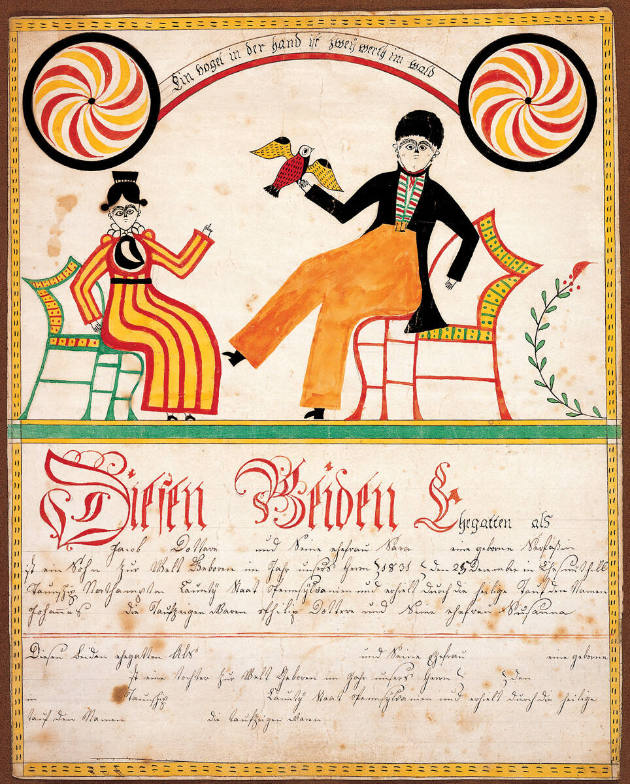 Ein vogel in der hand ist zwey werth im wald
Diesen Beiden Ehegatten als
Jacob Dottere und Seine ehefrau Sara eine geborne
ist ein Sohn zur Welt Geboren im Jahr unsers Herrn 1831 den 25 in Chesnuthill
Taunschip Northampton Caunty Staat Pennsylvanien und erhielt durch die heilige Tauf den Namen
Johannes die Taufzeugen Waren Philip Dottere und Seine ehefrau Susanna
Diesen beiden ehegatten Als und Seine Ehefrau eine geborne
ist eine Tochter zur Welt Geboren im Jahr unsers Herrn den
in Taunschip Caunty Staat Pennsylvanien und erhielt durch die heilige
tauf den Namen die taufzeugen waren